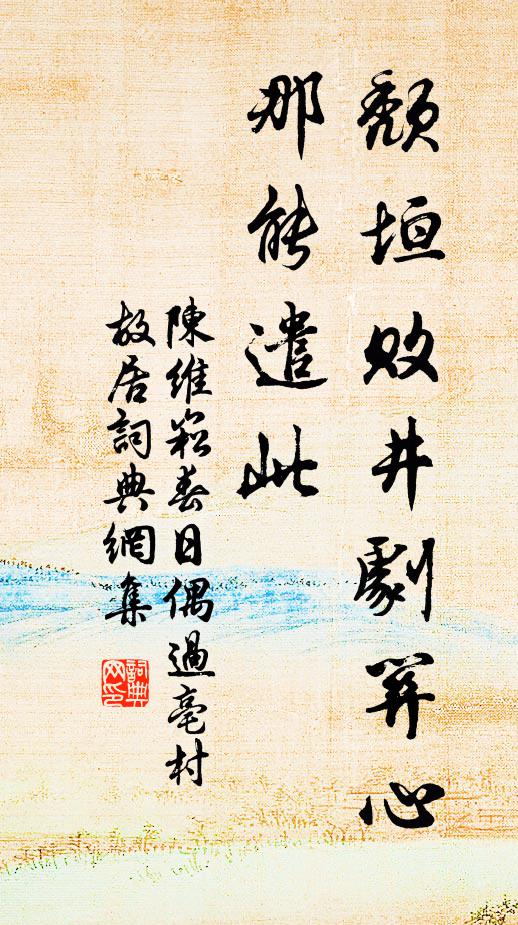 頹垣敗井劇關心
那能遣此
陳維崧春日偶過亳村
故居詞典網集
詞典
网印